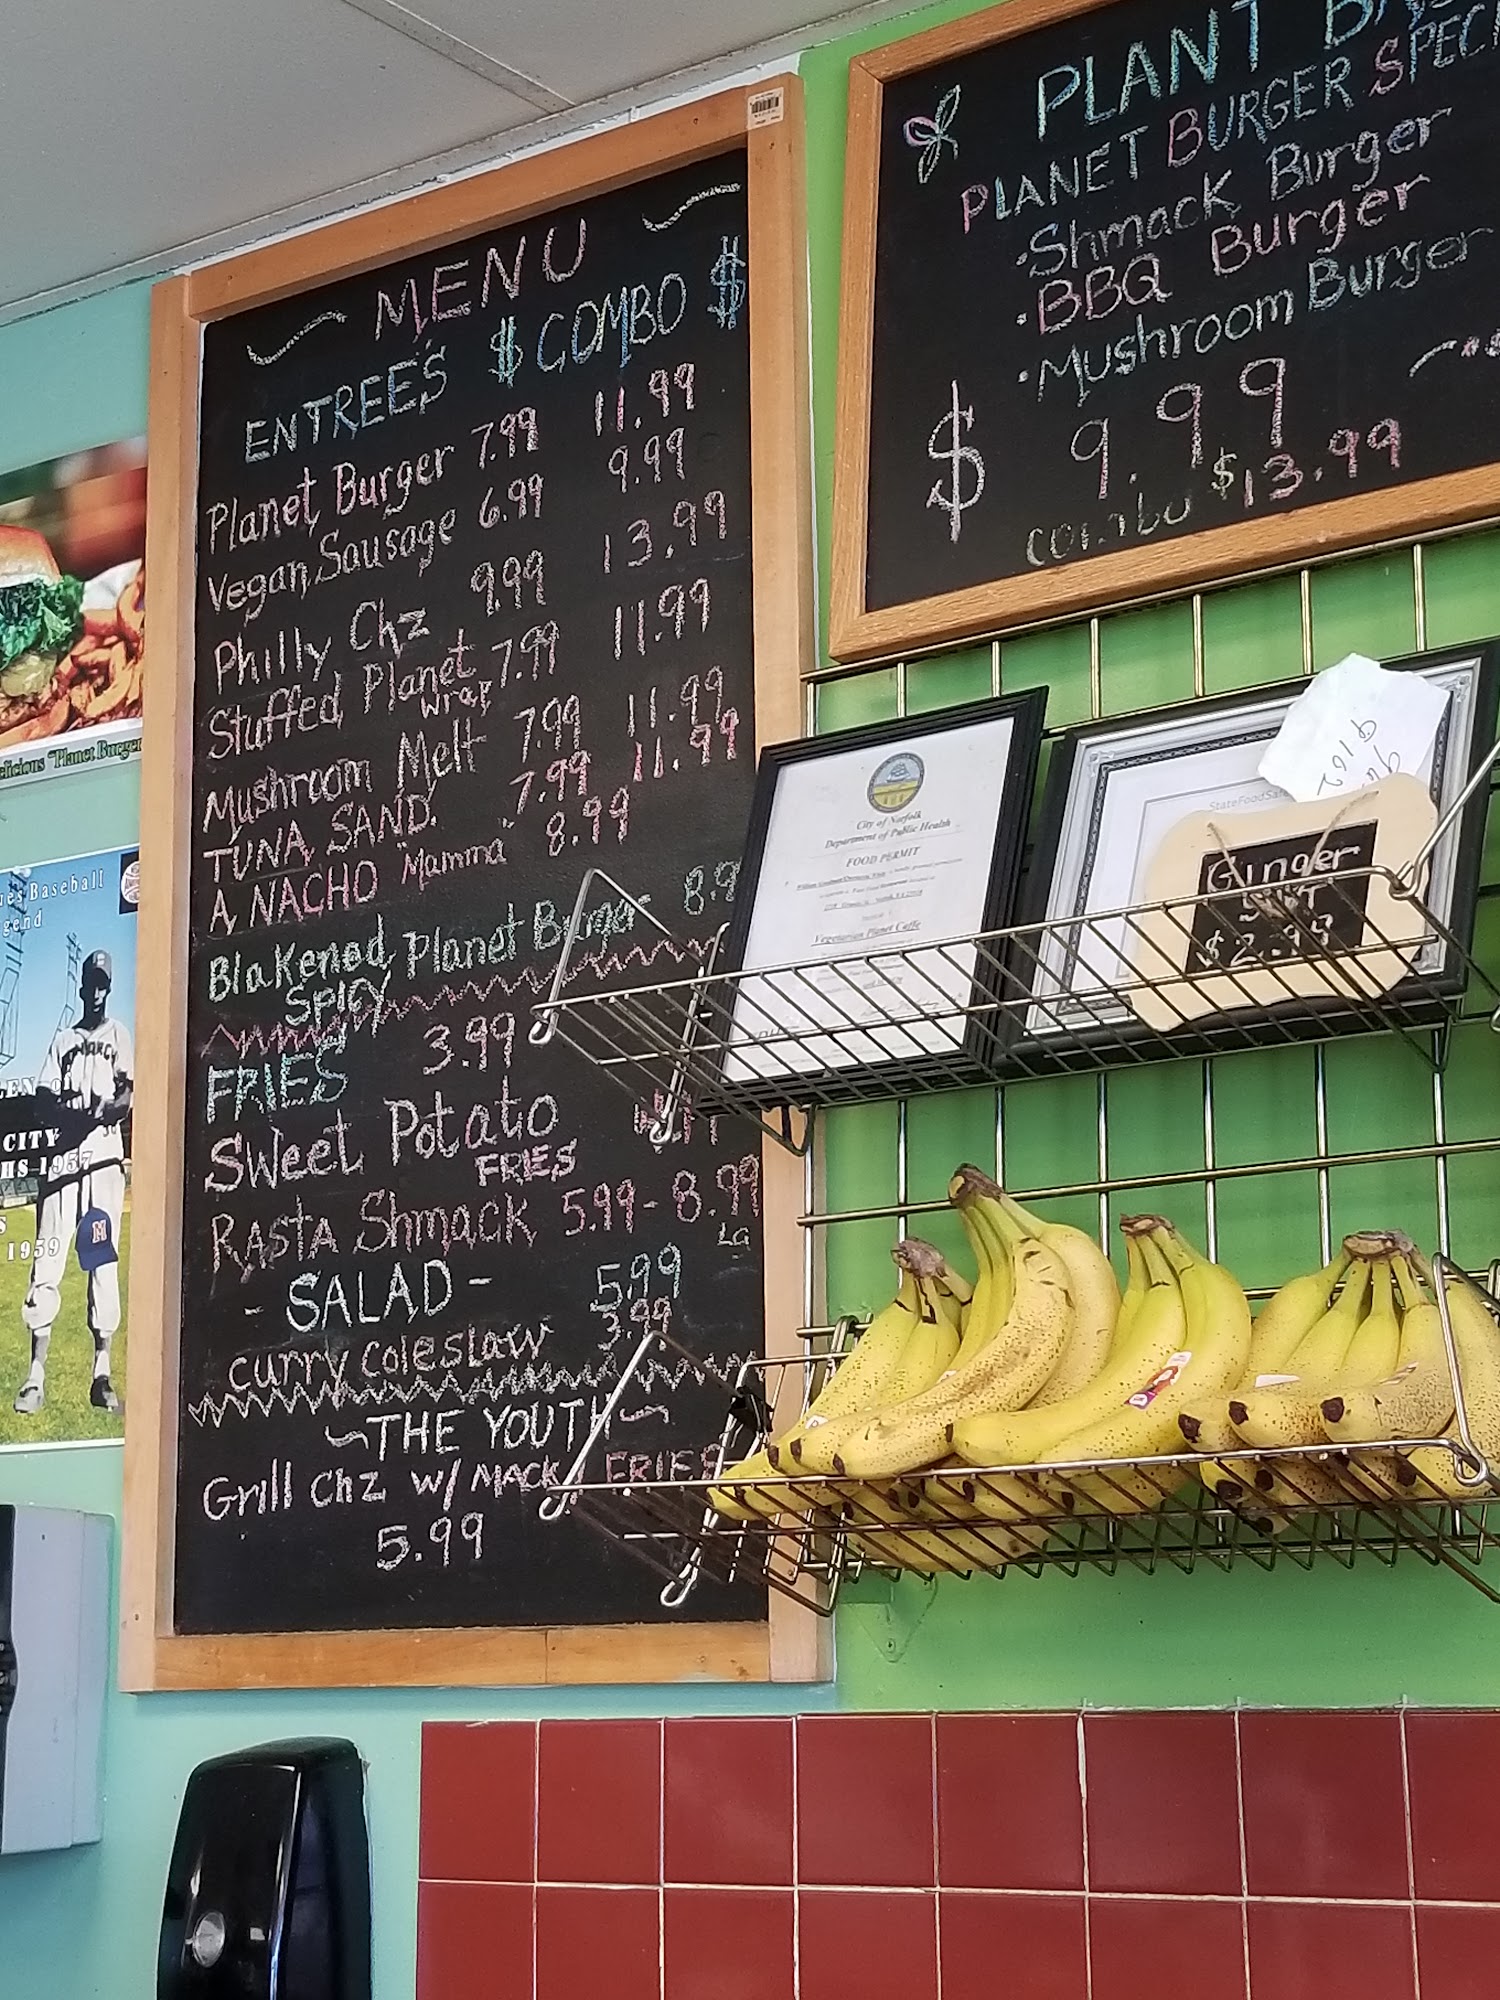 MENU
ENTREE'S $ COMBO $
Planet Burger 7.99 11.99
Vegan Sausage 6.99 9.99
Philly Chz 9.99 13.99
Stuffed Planet 7.99 11.99
Wrap
Mushroom Melt 7.99 11.99
TUNA SAND. 7.99 11.99
A NACHO Mamma 8.99
Blakened Planet Burger 8.9
SPICY
FRIES 3.99
Sweet Potato
FRIES
RASTA Shmack 5.99 - 8.99
LG
- SALAD - 5.99
curry coleslaw 3.99
~THE YOUTH~
Grill Chz w/ MACK / FRIES
5.99
PLANT
PLANET BURGER SPECI
• Shmack Burger
• BBQ Burger
• Mushroom Burger
$ 9.99
combo $13.99
City of Norfolk
Department of Public Health
FOOD PERMIT
Vegetarian Planet Caffe
StateFoodSafe
Ginger
SHOT
$2.99
elicious "Planet Burger
ues Baseball
gend
EN of
CITY
HS 1957
S
1959
M